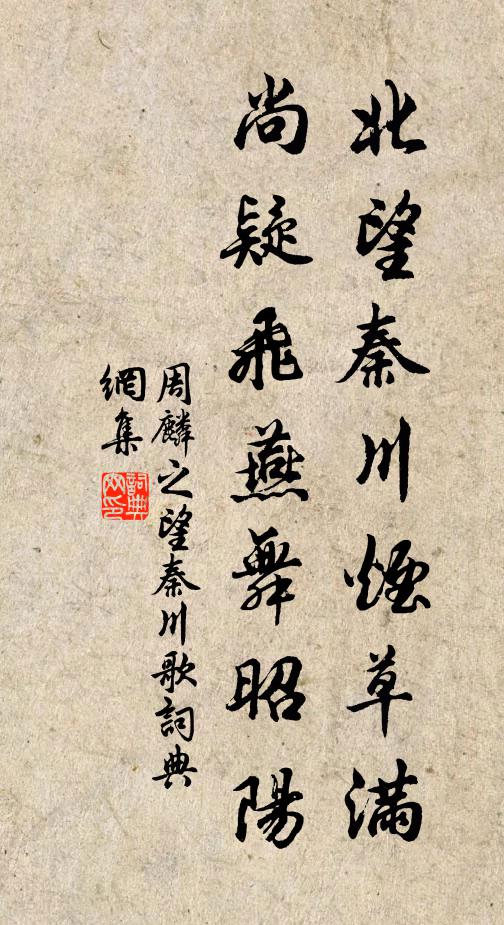 北望秦川煙草滿
尚疑飛燕舞昭陽
周麟之望秦川歌詞典
網集
詞典
网印